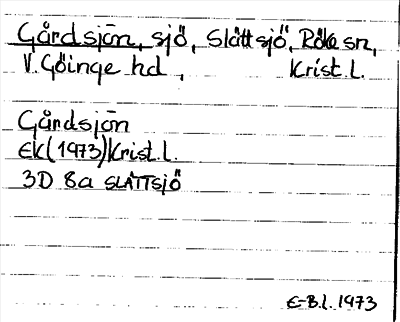 Gårdsjön, sjö, Slättsjö, Röke sn,
V. Göinge hd, Krist. l.
Gårdsjön
EK (1973) Krist. l.
3D 8a SLÄTTSJÖ
E-B. l. 1973